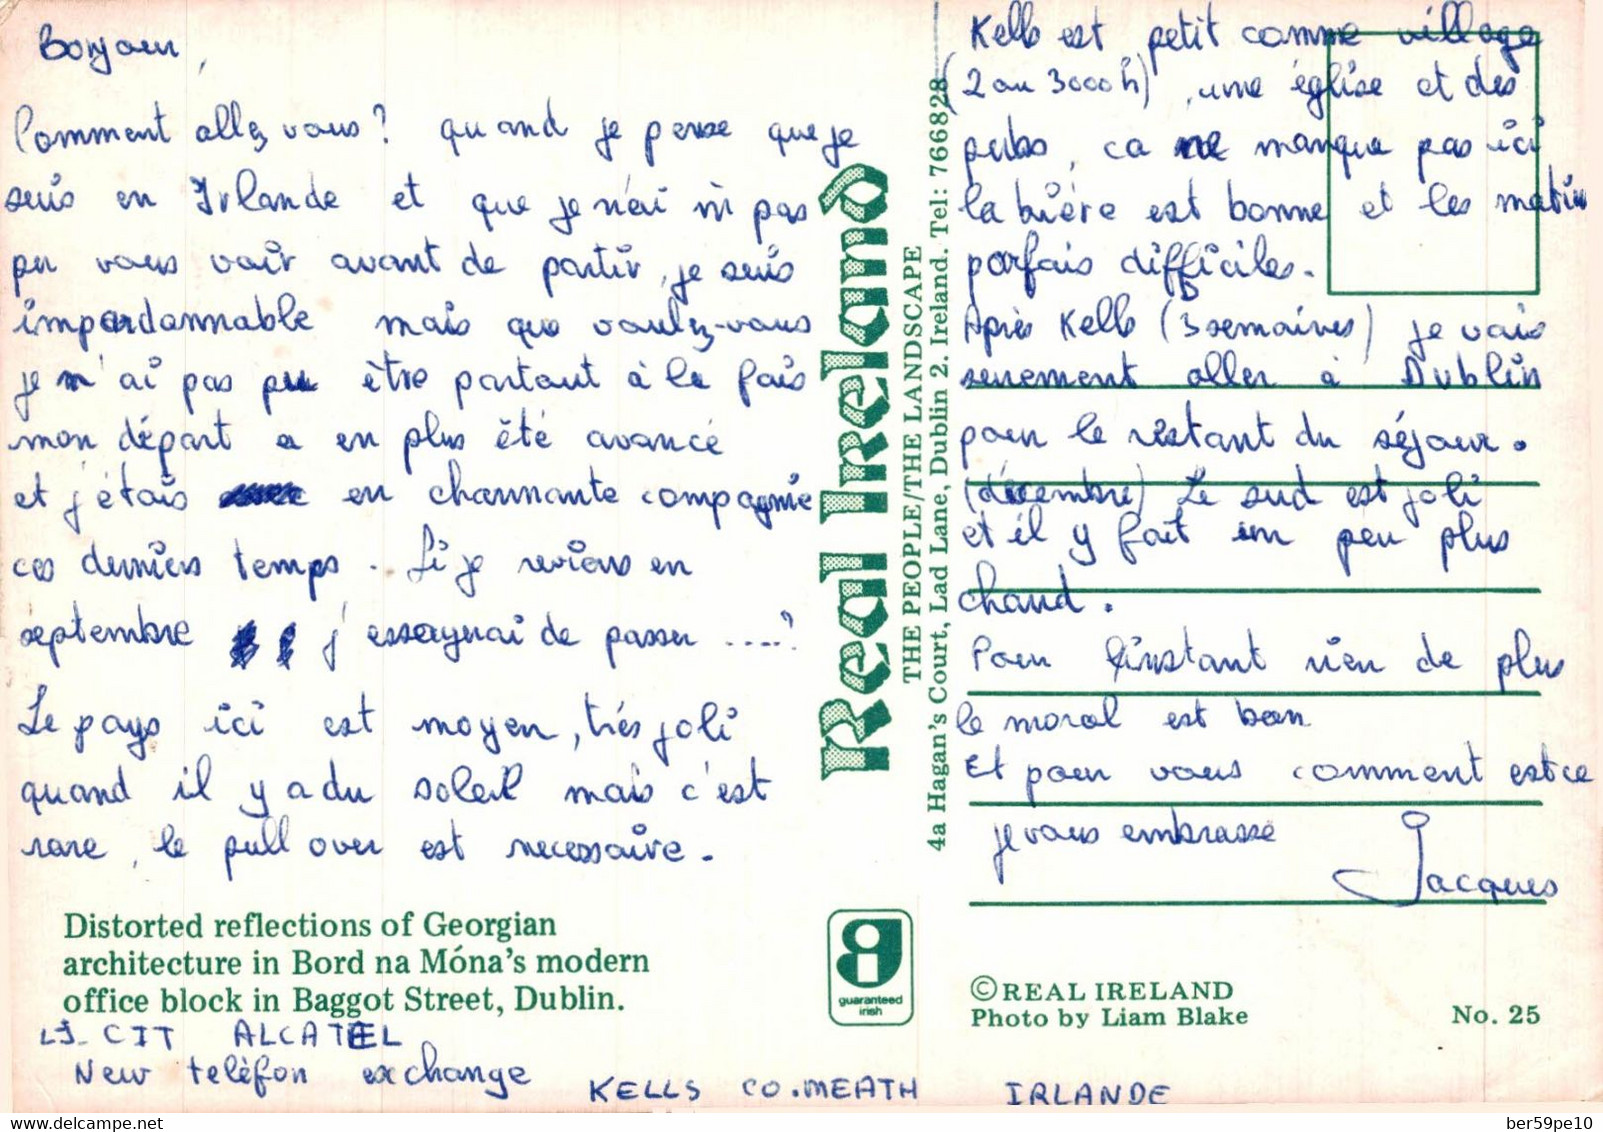 Bonjour,
Comment allez vous? quand je pense que je
suis en Irlande et que je n'ai ni pas
pu vous voir avant de partir, je suis
impardonnable mais que voulez-vous
je n'ai pas pu être partout à la fois
mon départ a en plus été avancé
et j'étais en charmante compagnie
ces derniers temps. Si je reviens en
septembre j'essayerai de passer ....?
Le pays ici est moyen, très joli
quand il y a du soleil mais c'est
rare, le pull over est necessaire.
Distorted reflections of Georgian
architecture in Bord na Móna's modern
office block in Baggot Street, Dublin.
CIT ALCATEL
New teléfon exchange
KELLS CO. MEATH IRLANDE
Real Ireland
THE PEOPLE/THE LANDSCAPE
4a Hagan's Court, Lad Lane, Dublin 2. Ireland. Tel: 766828
guaranteed
irish
Kells est petit comme village
(2 ou 3000 h), une église et des
pubs, ca ne manque pas ici
la bière est bonne et les matin
parfois difficiles.
Après Kells (3 semaines) je vais
surement aller à Dublin
pour le restant du séjour.
(décembre) Le sud est joli
et il y fait un peu plus
chaud.
Pour l'instant rien de plus
le moral est bon
Et pour vous comment est ce
je vous embrasse
Jacques
©REAL IRELAND
Photo by Liam Blake
No. 25
delcampe.net
ber59pe10